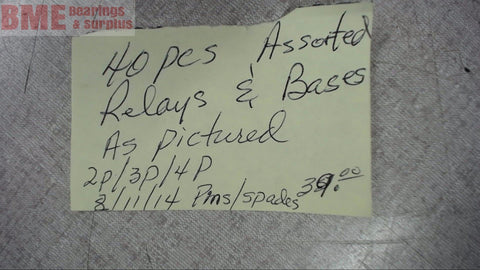 BME Bearings
& surplus
40 pcs Assorted
Relays & Bases
As pictured
2P/3P/4P
8/11/14 Pins/spades 39.00